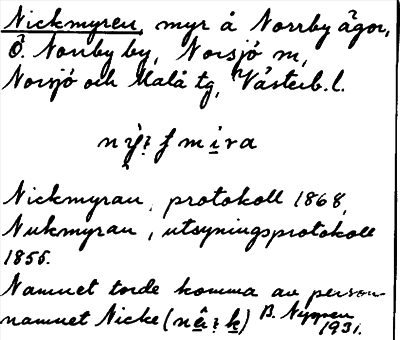 Nickmyren, myr å Norrby ägor,
Ö. Norrby by, Norsjö sn,
Norsjö och Malå tg, Västerb. l.
Nickmyran, protokoll 1868,
Nukmyran, utsyningsprotokoll
1855.
Namnet torde komma av person-
namnet Nicke
1931.